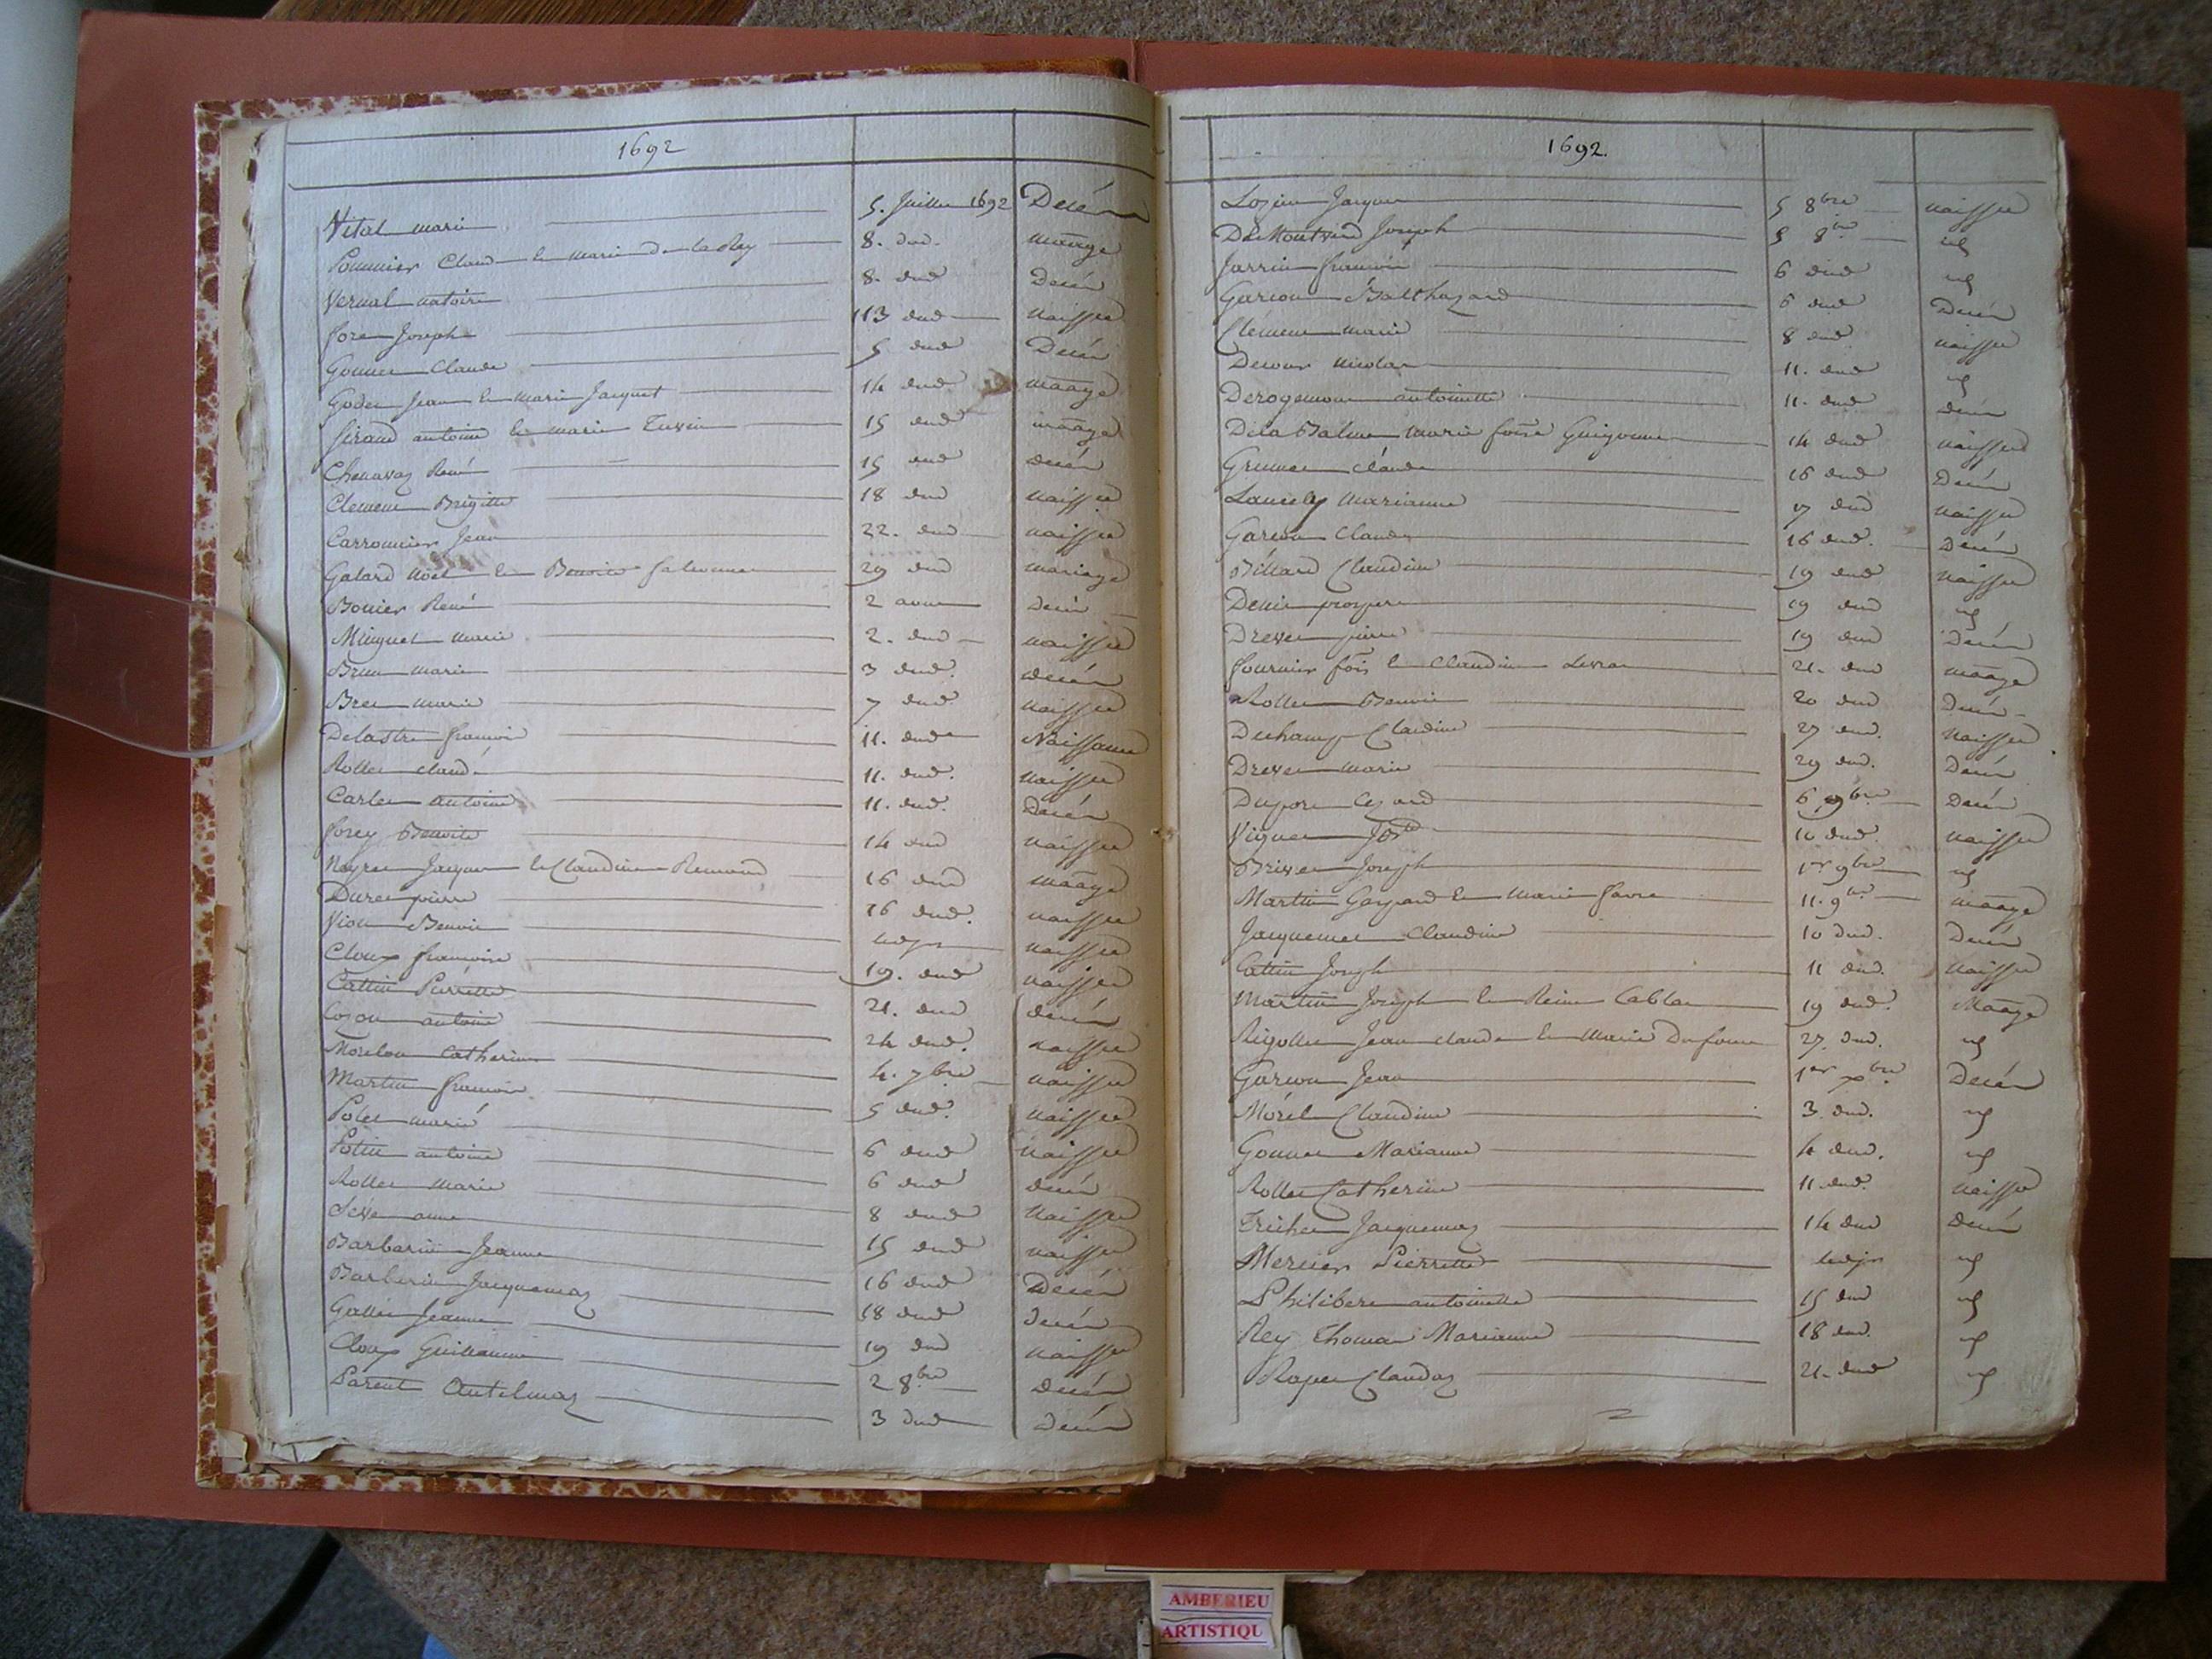 1692
Vital marie 5. Juillet 1692 Décés
Pommier Claude et marie de la Rey 8. dud. maage
Vernal antoine 8. dud Decés
fore Joseph 113 dud naissce
Gonnet Claude 5 dud Decés
Godet Jean et marie Jacquet 14 dud maage
Giraud antoine et marie 15 dud maage
Chenavaz René 15 dud decés
Clement Brigitte 18 dud naissce
Carronnier Jean 22. dud naissce
Galard Noël et Benoite 29 dud mariage
Bonier René 2 aout decés
Minguet marie 2. dud naissce
Brun marie 3 dud. decés
Bret marie 7 dud naissce
Delastre francois 11. dud Naissance
Rollet claude 11. dud. naissce
Carlet antoine 11. dud. Decés
forey Benoite 14 dud naissce
Neyret Jacques et Claudine Remond 16 dud maage
Duret pierre 16 dud. naissce
Viou Benoit ledjr naissce
Cloux francoise 19. dud naissce
Cattin Pierrette 21. dud decés
Coson antoine 24 dud. naissce
Morelon Catherine 4. 7bre naissce
Martin francois 5 dud. naissce
Polet marie 6 dud naissce
Potin antoine 6 dud decés
Rollet marie 8 dud naissce
anne 15 dud naissce
Barbarin Jeanne 16 dud Decés
Barberin Jacquemaz 18 dud decés
Gallet Jeanne 19 dud naissce
Cloux Guillaume 2 8bre decés
Parent Antelmaz 3 dud decés
1692.
Lozier Jacques 5 8bre naissce
DeMontverd Joseph 5 8bre id
Jarrin francois 6 dud id
Garcon Balthazard 6 dud Decés
Clément marie 8 dud naissce
Decour nicolas 11. dud id
Derogemont antoinette 11. dud decés
Dela Balme marie foise Guigonne 14 dud naissce
Grumet claude 16 dud Decés
Marianne 17 dud naissce
Garcon Claude 16 dud. Decés
Billard Claudine 19 dud naissce
Denis prospere 19 dud id
Drevet pierre 19 dud Decés
fournier fois et Claudine 21. dud maage
Rollet Benoit 20 dud decés
Duchamp Claudine 27 dud. naissce
Drevet marie 29 dud. Decés
Duport Cezard 6 9bre decés
Viguet 10 dud naissce
Brivet Joseph 1er 9bre id
Martin Gaspard et marie favre 11. 9bre maage
Jacquemet Claudine 10 dud. Decés
Cattin Joseph 11 dud. naissce
Martin Joseph et Reine 19 dud. Maage
Rigollet Jean claude et marie Dufour 27. dud. id
Garcon Jean 1er xbre Decés
Morel Claudine 3. dud. id
Gonnet Marianne 4 dud. id
Rollet Catherine 11 dud. naissce
Trichet Jacquemaz 14 dud decés
Mercier Pierrette ledjr id
Philibert antoinette 15 dud id
Rey Thomas Marianne 18 dud. id
Roper Claudaz 21. dud id
AMBERIEU
ARTISTIQU